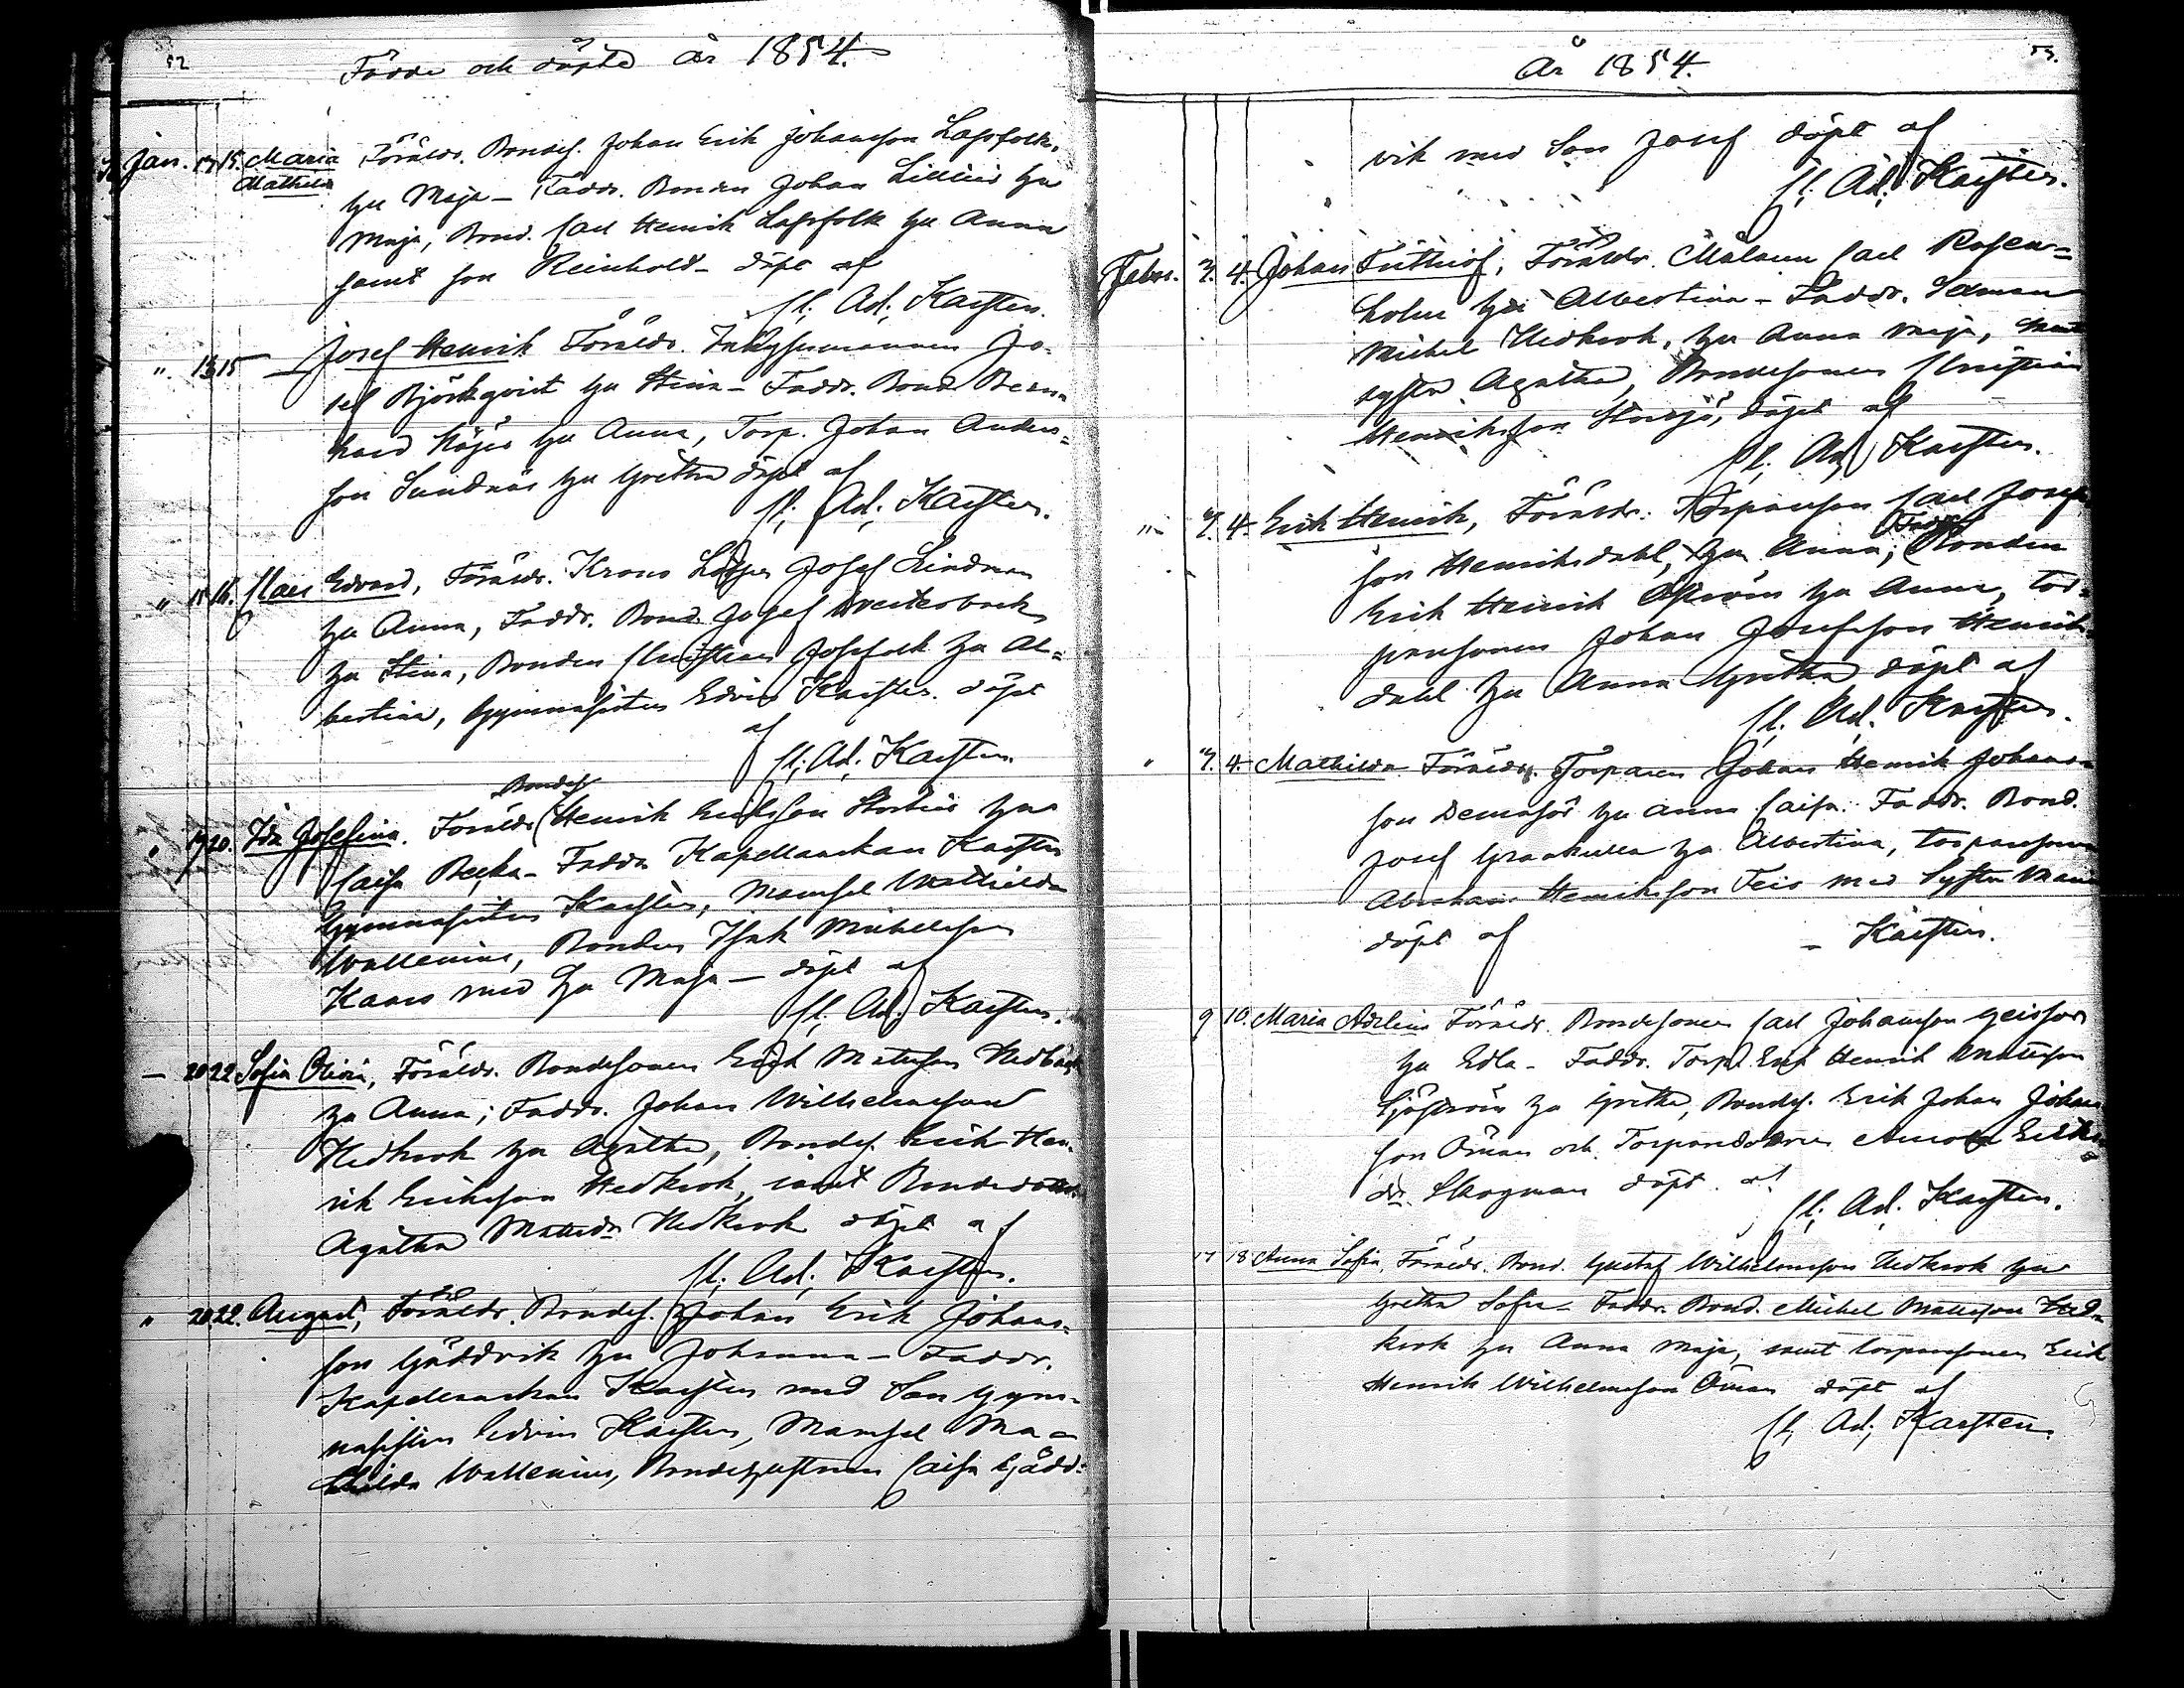 52
Födde och döpte år 1854.
Jan. 13 15. Maria Mathilda Föräldr. Bondes. Johan Erik Johansson Lassfolk,
hu Maja – Faddr. Bonden Johan Lillius hu
Maja, Bond. Carl Henrik Lassfolk hu Anna
samt son Reinhold – döpt af
Cl. Ad. Karsten.
„ 13 15 Josef Henrik Föräldr. Inhysesmannen Jo-
sef Björkqvist hu Stina – Faddr. Bond. Bern-
hard Höjer hu Anna, Torp. Johan Anders-
son Sundnäs hu Gretha döpt af
Cl. Ad. Karsten.
„ 15 16. Claes Edvard, Föräldr. Krono Josef Lindman
hu Anna, Faddr. Bond. Josef Westerback
hu Stina, Bonden Christian Josfolk hu Al-
bertina, Gymnasisten Edvin Karsten. döpt
af
Cl. Ad. Karsten.
„ 19 20. Ida Josefina. Föräldr. Bondes. Henrik Eriksson Storbus hu
Caisa Becka – Faddr. Kapellanskan Karsten
Gymnasisten Karsten, Mamsel Mathilda
Wallenius, Bonden Isak Mickelsson
Kaars med hu Maja – döpt af
Cl. Ad. Karsten.
– 20 22 Sofia Olivia, Föräldr. Bondesonen Erik Mattsson Hedbäck
hu Anna; Faddr. Johan Wilhelmsson
Hedkrok hu Agatha, Bondes. Erik Hen-
rik Eriksson Hedkrok, samt Bondedottr.
Agatha Mattsdr Hedkrok döpt af
Cl. Ad. Karsten.
„ 20 22. August, Föräldr. Bondes. Johan Erik Johans-
son Gäddvik hu Johanna – Faddr.
Kapellanskan Karsten med Son Gym-
nasisten Edvin Karsten, Mamsel Ma-
thilda Wallenius, Bondehustrun Caisa Gädd-
År 1854.
53.
vik med Son Josef döpt af
Cl. Ad. Karsten.
Febr. 3. 4. Johan Frithiof, Föräldr. Målaren Carl Rosen-
holm hu Albertina – Faddr.
Mickel Hedkrok, hu Anna Maja, samt
syster Agatha, Bondesonen Christian
Henriksson Storsjö, döpt af
Cl. Ad. Karsten.
„ 3. 4. Erik Henrik, Föräldr. Torparson Carl Josefs-
son Henriksdahl, hu Anna, Faddr. Bonden
Erik Henrik hu Anna, Tor-
parsonen Johan Josefsson Henriks-
dahl hu Anna Gretha döpt af
Cl. Ad. Karsten.
„ 3. 4. Mathilda Föräldr. Torparen Johan Henrik Johans-
son Demasör hu Anna Caisa. Faddr. Bond.
Josef Grankulla hu Albertina, torparsonen
Abraham Henriksson Teir med Syster Maria
döpt af – Karsten.
9 10. Maria Adelina Föräldr. Bondesonen Carl Johansson Geissor
hu Edla – Faddr. Torp. Erik Henrik Mattsson
Sjöström hu Gretha, Bondes. Erik Johan Johans-
son Öman och Torparedottren Erics-
dr. Skogman döpt af
Cl. Ad. Karsten.
17 18 Anna Sofia, Föräldr. Bond. Gustaf Wilhelmsson Hedkrok hu
Gretha Sofia – Faddr. Bond. Mickel Mattsson Hed-
krok hu Anna Maja, samt torparsonen Erik
Henrik Wilhelmsson Öman döpt af
Cl. Ad. Karsten.